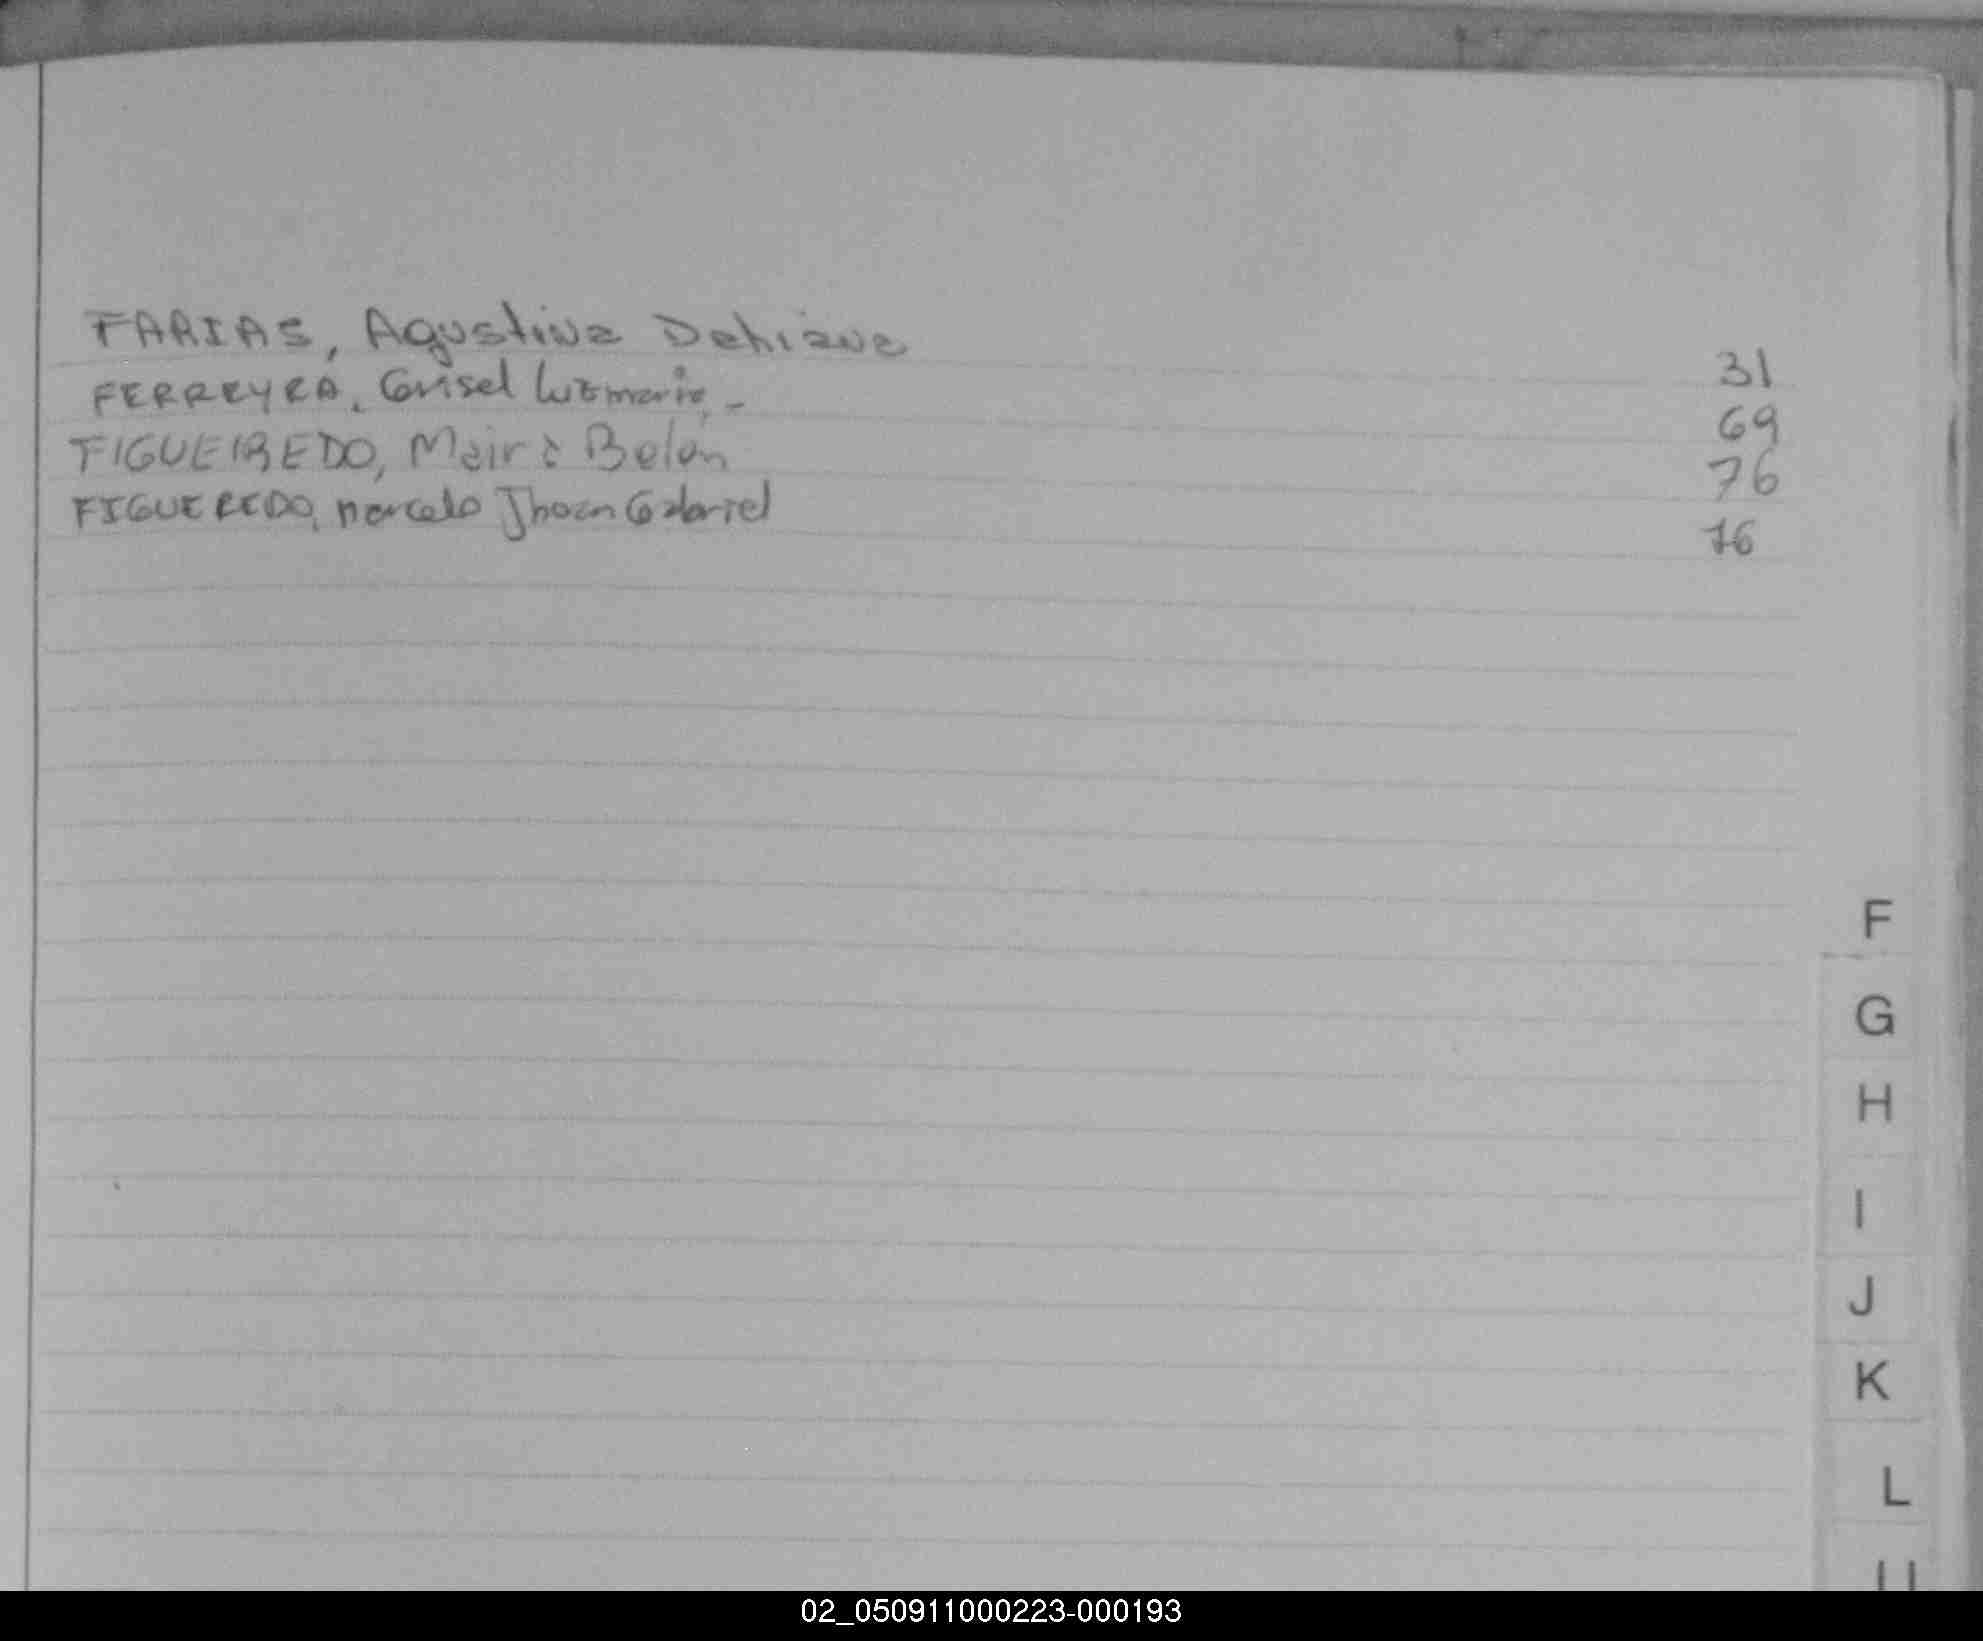 FARIAS, Agustina Dahiana 31
FERREYRA, Grisel Luzmaria.- 69
FIGUEIREDO, Maira Belén 76
FIGUEREDO, Marcelo Jhoan Gabriel 76
F
G
H
I
J
K
L
02_050911000223-000193